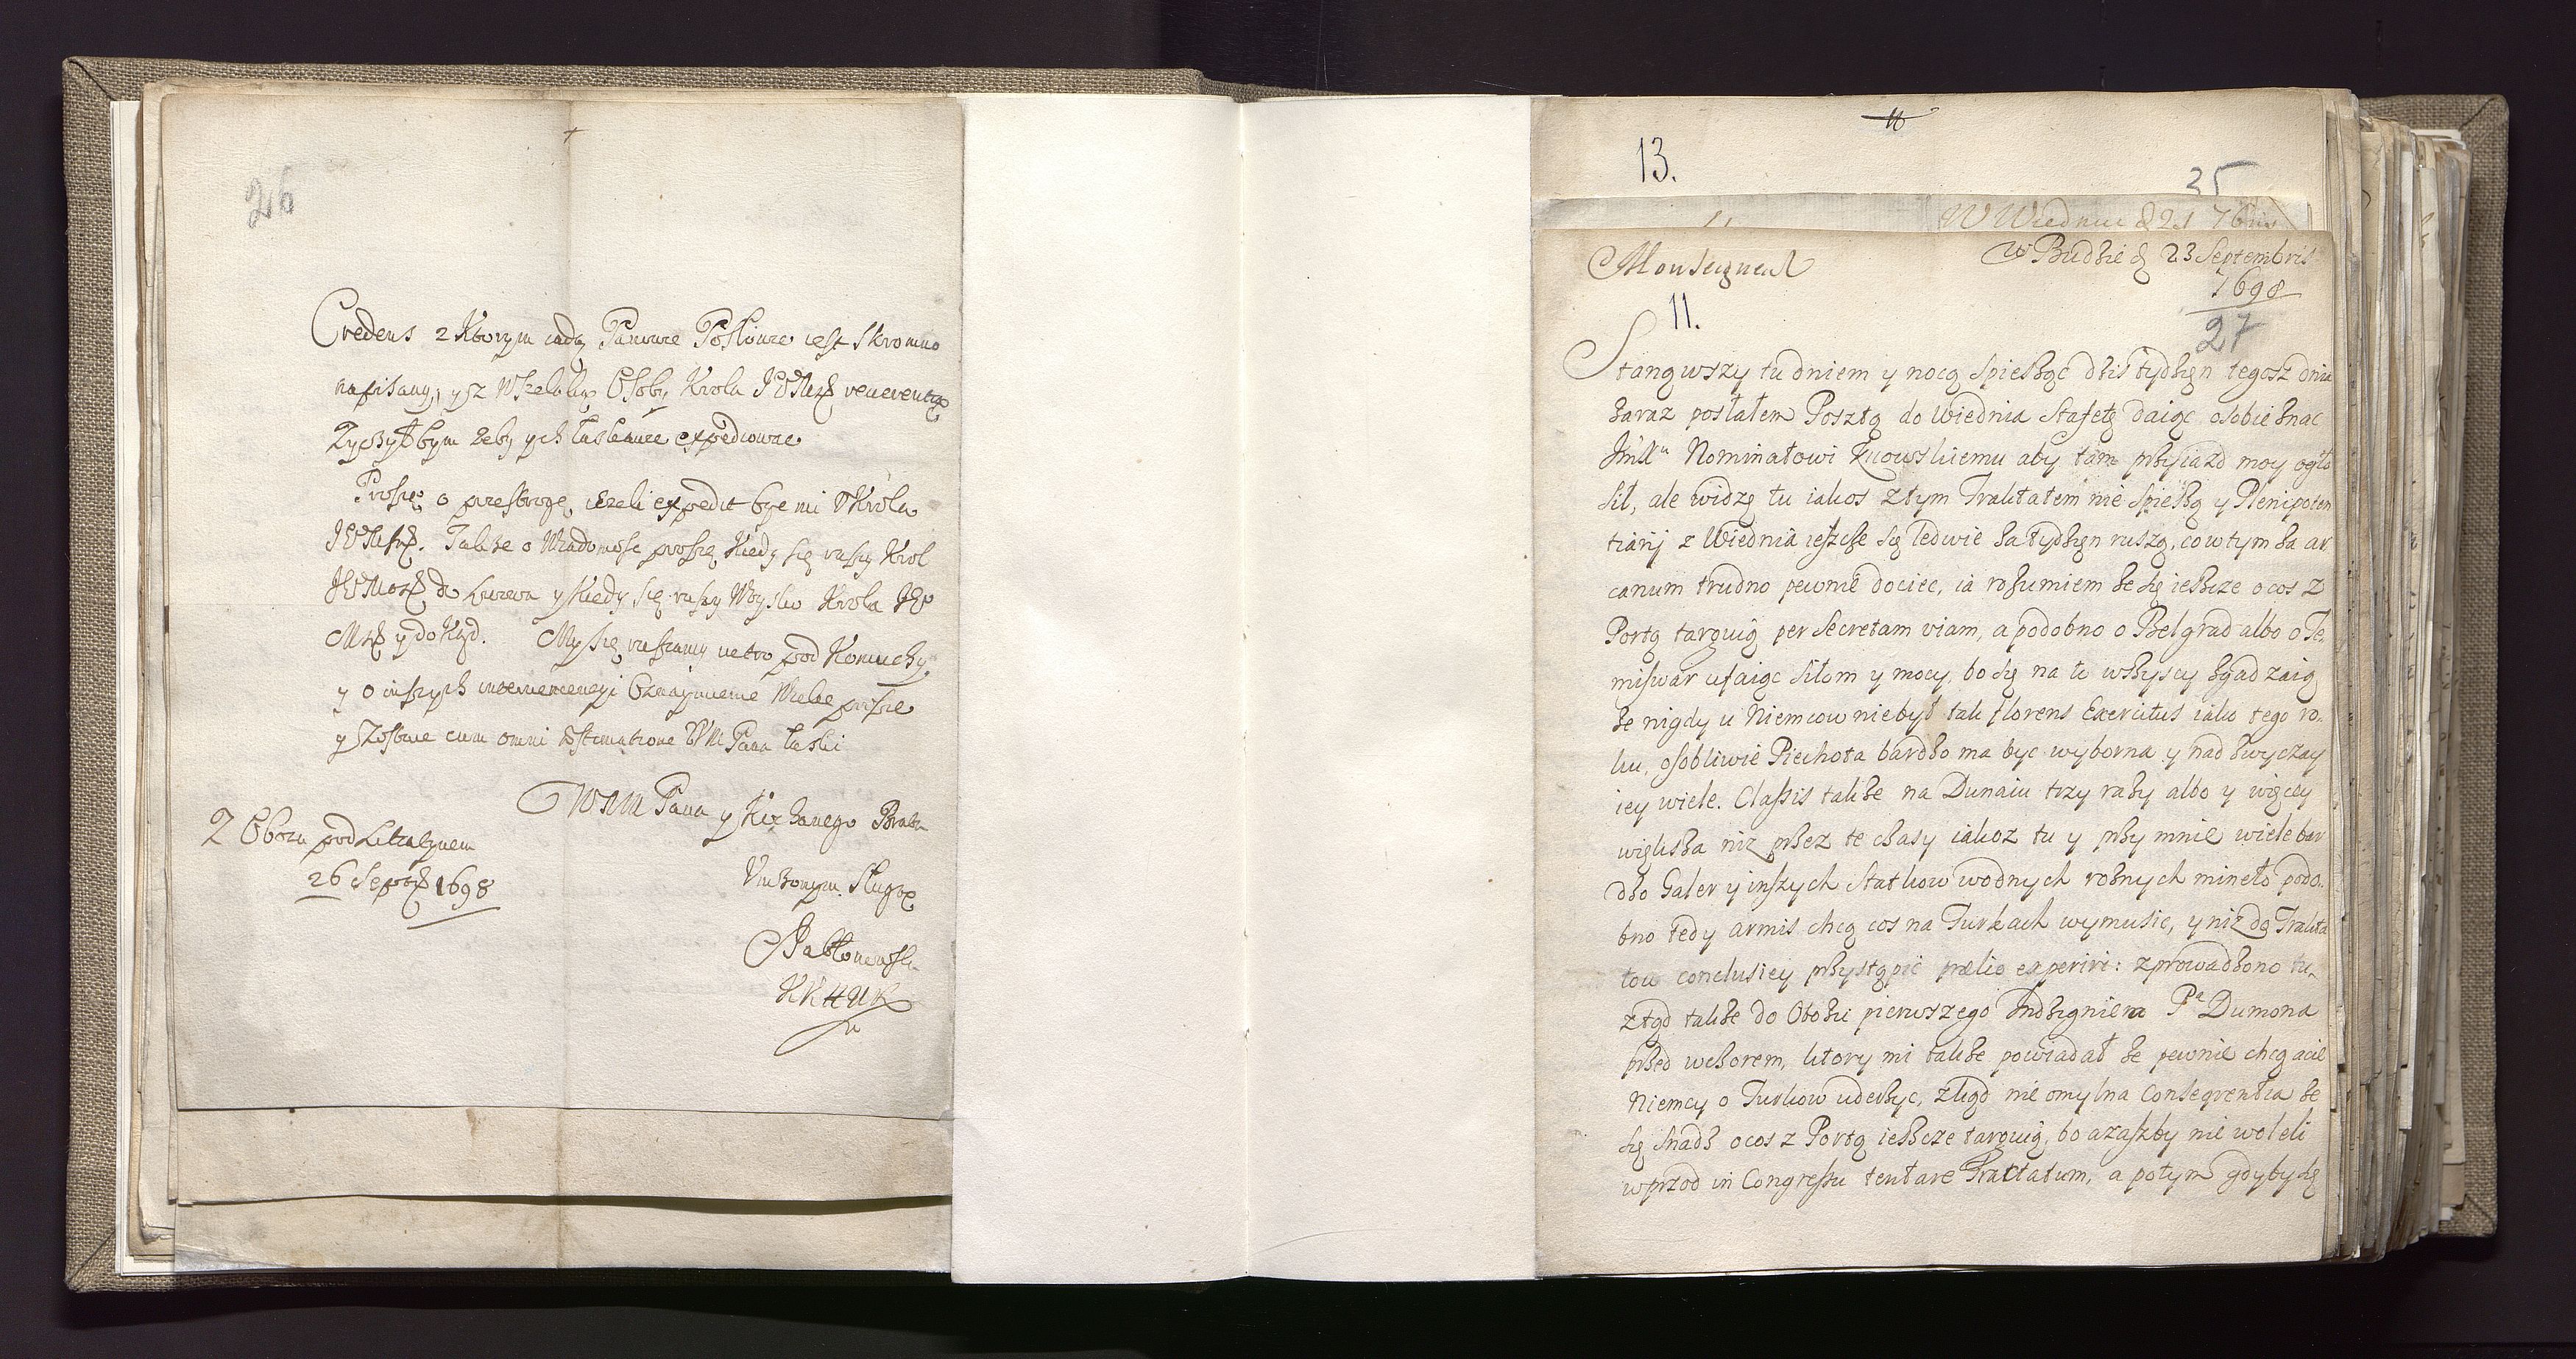 26
Credens z Ktorym iadą Panowie Posłowie iest skromno
napisany, y z Wszelaką Osoby Krola JEoMsci reverentią
Zyczył bym zeby ych łaskawie expediowac
Proszę o przestrogę, iezeli expedit byc mi u Krola
JEoMsci. Takze o Wiadomosc proszę kiedy się ruszy Krol
JEoMosc do Lwowa y kiedy się ruszy Woysko Krola JEo
Msci y dokąd. My się ruszamy iutro pod Koniuchy
y o inszych Oznaymienie Wielce proszę
y Zostaie cum omni æstimatione WM Pana łaski
WMM Pana y Kochanego Brata
Z Obozu pod
26 Septr 1698
Unizonym Sługą
Jabłonowski
KKHWK
13.
25
W Wiedniu d 21 7bris
Monseigneur
w Budzie d 23 Septembris
1698
11.
27
Stanąwszy tu dniem y nocą spiesząc dzis tydzięn tegosz dnia
zaraz posłałem Posztą do Wiednia Stafetę daiąc o sobie znac
Jmsu Nominatowi Kiiowskiemu aby tam przyiazd moy ogło
sił, ale widzę tu iakos z tym Traktatem nie spieszą y Plenipoten
tiarij z Wiednia ieszcze się ledwie za tydzięn ruszą, co w tym za ar
canum trudno pewnie dociec, ia rozumiem ze się ieszcze o cos z
Portą targuią per secretam viam, a podobno o Belgrad albo o Te,
miswar ufaiąc siłom y mocy, bo się na to wszyscy zgadzaią
ze nigdy u Niemcow niebył tak florens Exercitus iako tego ro,
ku, osobliwie Piechota bardzo ma byc wyborna y nad zwyczay
iey wiele. Classis takze na Dunaiu trzy razy albo y więcey
większa niz przez te czasy iakoz tu y przy mnie wiele bar
dzo Galer y inszych Statkow wodnych roznych mineło podo,
bno tedy armis chcą cos na Turkach wymusic, y niz do Trakta
tow conclusiey przystąpic prælio experiri: zprowadzono tu,
ztąd takze do Obozu pierwszego Indzigniera Pa Dumona
przed wczorem, ktory mi takze powiadał ze pewnie chcą acie
Niemcy o Turkow uderzyc, zkąd nie omylna Conseqventia ze
się snadz o cos z Portą ieszcze targuią, bo azaszby nie woleli
wprzod in Congressu tentare Tractatum, a potym gdyby się